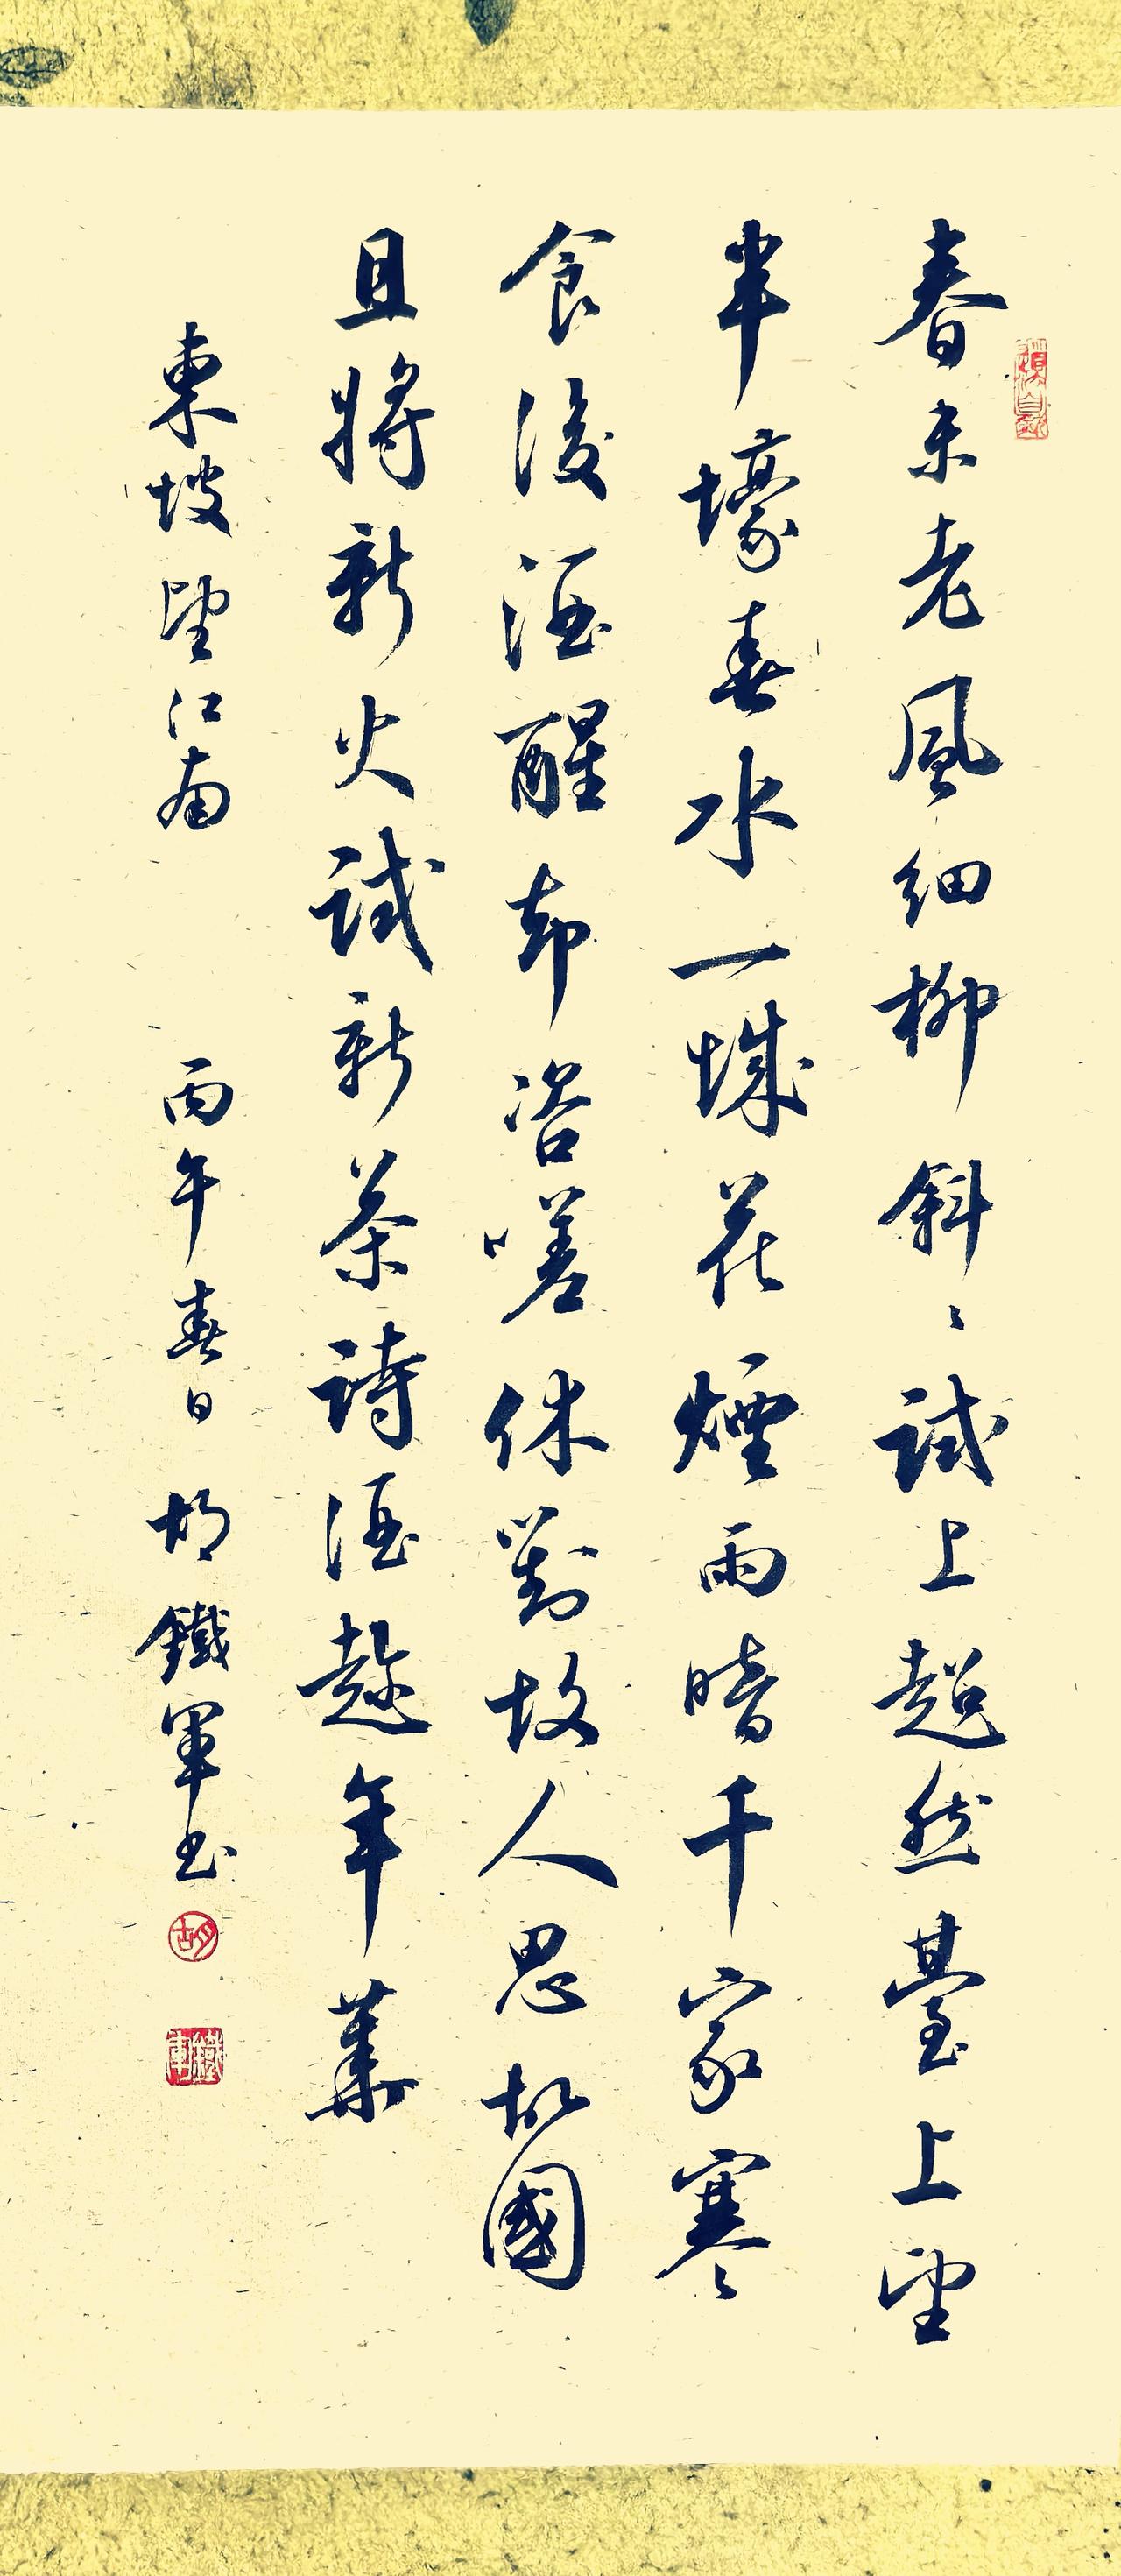 春未老風細柳斜〻試上超然臺上望
半壕春水一城花煙雨暗千家寒〻
食後酒醒却咨嗟休對故人思故國
且將新火試新茶詩酒趁年華
東坡望江南 丙午春日 胡鐵軍书
胡
鐵軍